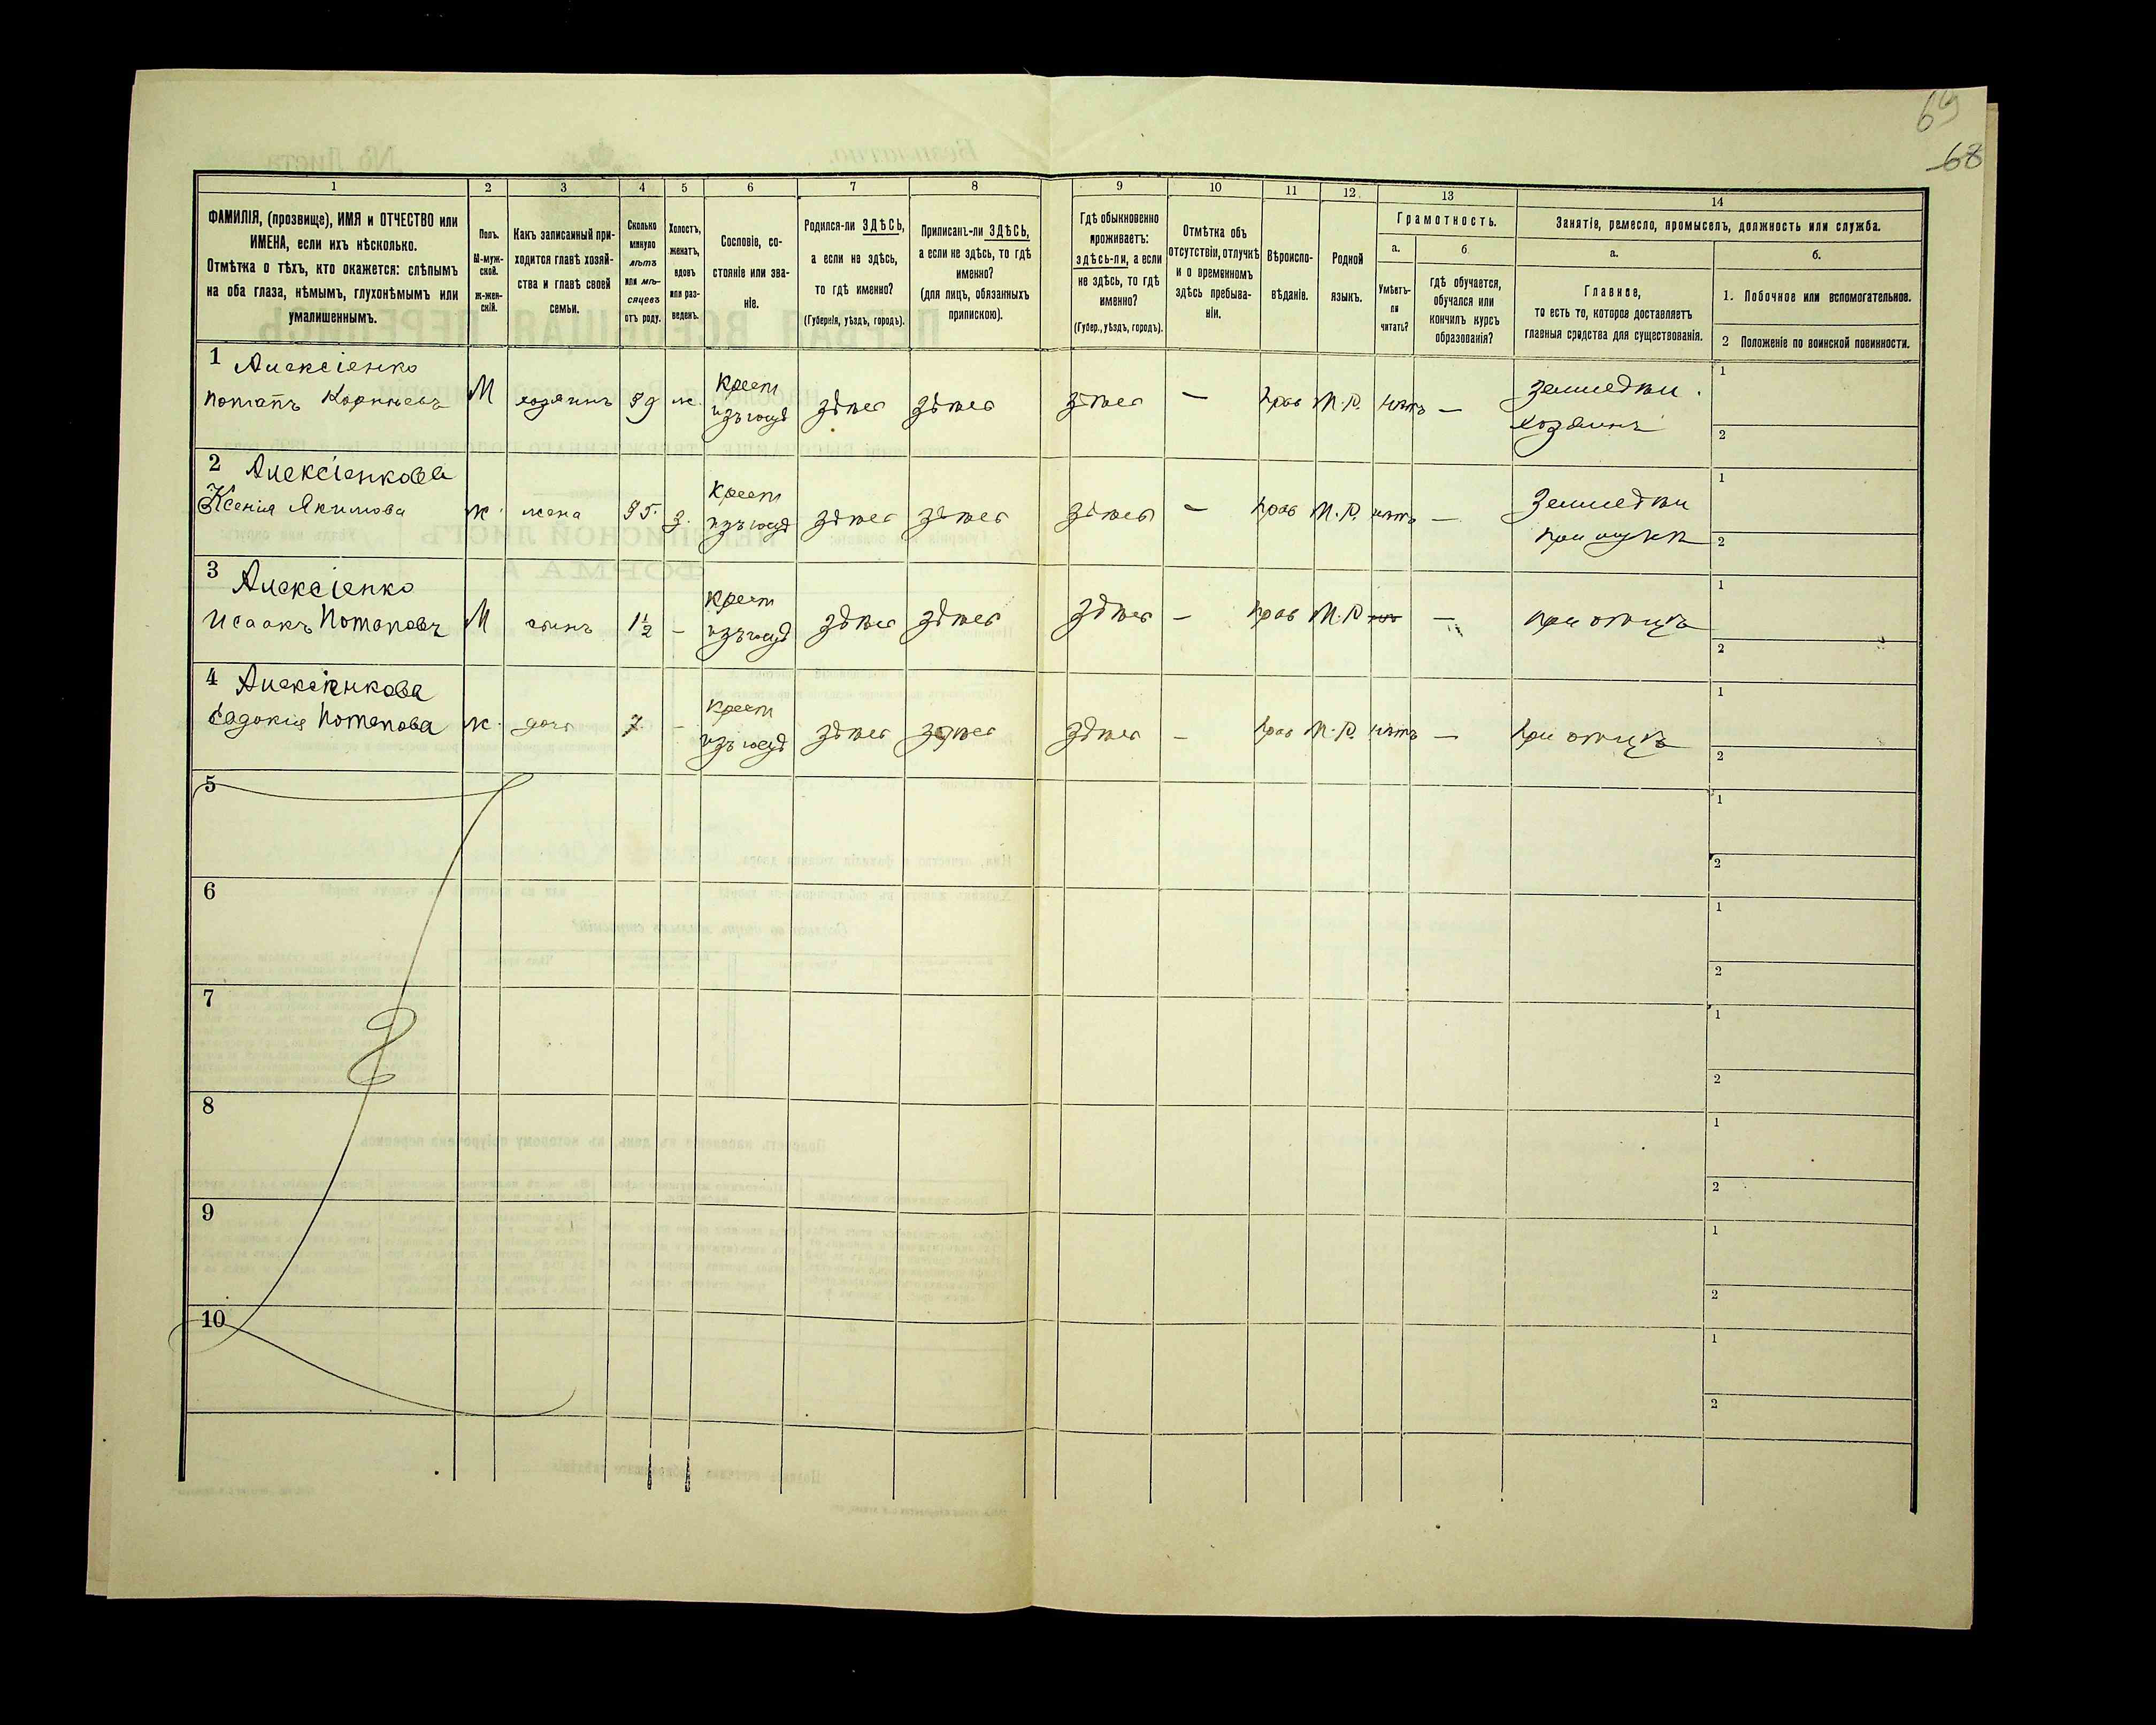 69
68
1 2 3 4 5 6 7 8 9 10 11 12 13 14
ФАМИЛІЯ, (прозвище), ИМЯ и ОТЧЕСТВО или
ИМЕНА, если ихъ нѣсколько.
Отмѣтка о тѣхъ, кто окажется: слѣпымъ
на оба глаза, нѣмымъ, глухонѣмымъ или
умалишеннымъ.
Полъ.
М-муж-
ской.
Ж-жен-
скій.
Какъ записанный при-
ходится главѣ хозяй-
ства и главѣ своей
семьи.
Сколько
минуло
лѣтъ
или мѣ-
сяцевъ
отъ роду.
Холостъ,
женатъ,
вдовъ
или раз-
веденъ.
Сословіе, со-
стояніе или зва-
ніе.
Родился-ли ЗДѢСЬ,
а если не здѣсь,
то гдѣ именно?
(Губернія, уѣздъ, городъ).
Приписанъ-ли ЗДѢСЬ,
а если не здѣсь, то гдѣ
именно?
(для лицъ, обязанныхъ
припискою).
Гдѣ обыкновенно
проживаетъ:
здѣсь-ли, а если
не здѣсь, то гдѣ
именно?
(Губер., уѣздъ, городъ).
Отмѣтка объ
отсутствіи, отлучкѣ
и о временномъ
здѣсь пребыва-
ніи.
Вѣроиспо-
вѣданіе.
Родной
языкъ.
Грамотность.
а.
Умѣетъ-
ли
читать?
б.
гдѣ обучается,
обучался или
кончилъ курсъ
образованія?
Занятіе, ремесло, промыселъ, должность или служба.
а.
Главное,
то есть то, которое доставляетъ
главныя средства для существованія.
б.
1. Побочное или вспомогательное.
2 Положеніе по воинской повинности.
1 Алексіенко
Потапъ Корнѣевъ М хозяинъ 39 ж. Крест изъ госуд здѣсь здѣсь здѣсь — прав М.Р. нѣтъ — Земледѣл. Хозяинъ 1 2
2 Алексіенкова
Ксенія Якимова ж. жена 35. з. Крест изъ госуд здѣсь здѣсь здѣсь — прав М.Р. нѣтъ — Земледѣл при мужѣ 1 2
3 Алексіенко
Исаакъ Потаповъ М сынъ 1½ — Крест изъ госуд здѣсь здѣсь здѣсь — прав М.Р. — при отцѣ 1 2
4 Алексіенкова
Евдокія Потапова ж. дочь 7. — Крест изъ госуд здѣсь здѣсь здѣсь — прав М.Р. нѣтъ — при отцѣ 1 2
5 1 2
6 1 2
7 1 2
8 1 2
9 1 2
10 1 2